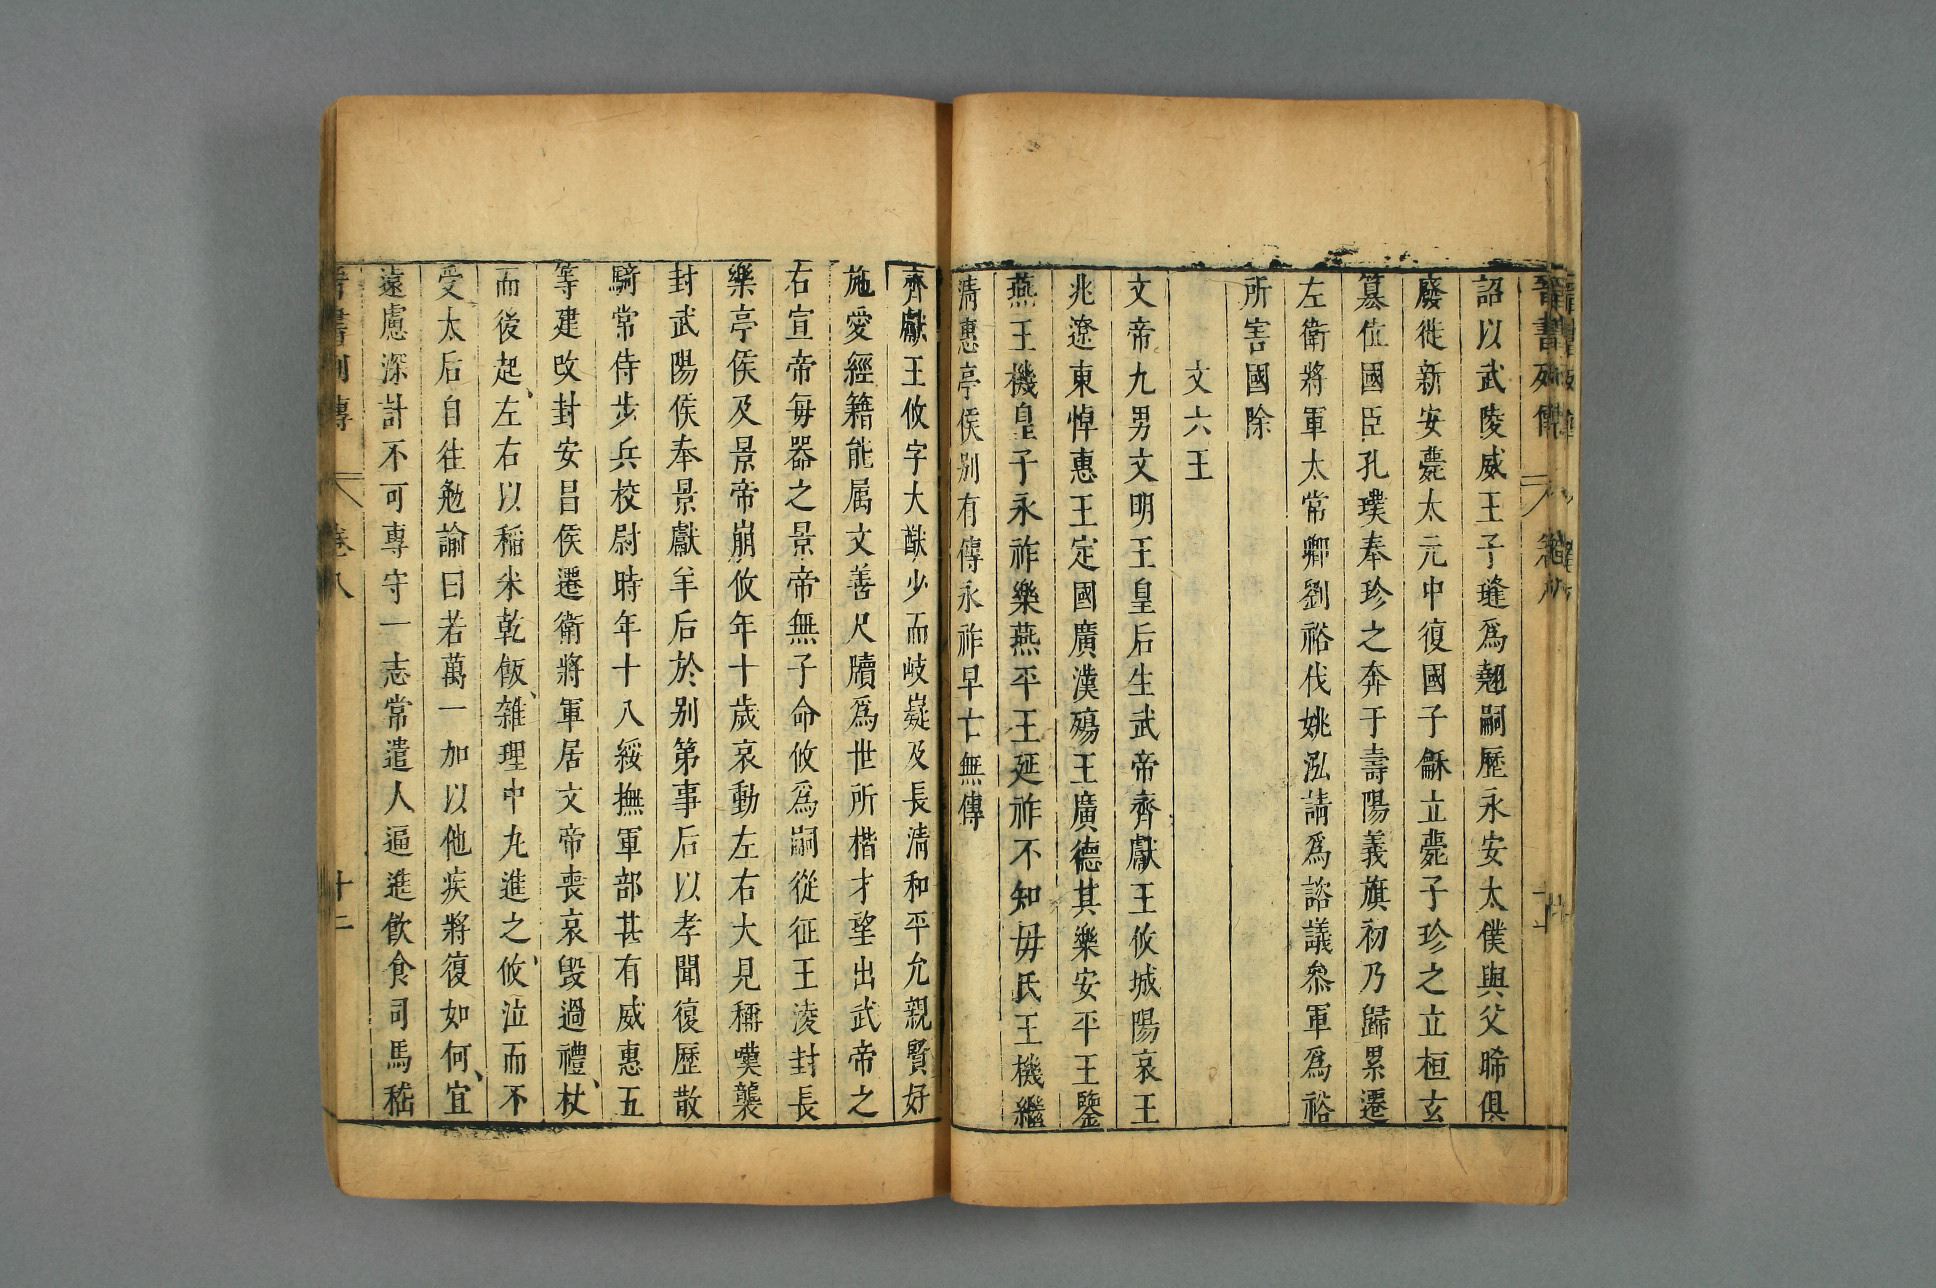 晉書列傳
詔以武陵威王子𨩐爲翹嗣歷永安太僕與父晞俱
廢徙新安薨太元中復國子龢立薨子珍之立桓玄
篡位國臣孔璞奉珍之奔于壽陽義旗初乃歸累遷
左衛將軍太常卿劉裕伐姚泓請爲諮議參軍爲裕
所害國除
文六王
文帝九男文明王皇后生武帝齊獻王攸城陽哀王
兆遼東悼惠王定國廣漢殤王廣德其樂安平王鑒
燕王機皇子永祚樂燕平王延祚不知毋氏王機繼
清惠亭侯别有傳永祚早亡無傳
齊獻王攸字大猷少而岐嶷及長清和平允親賢好
施愛經籍能属文善尺牘爲世所楷才望出武帝之
右宣帝毎器之景帝無子命攸爲嗣從征王淩封長
樂亭侯及景帝崩攸年十歲哀動左右大見稱嘆襲
封武陽侯奉景獻羊后於别第事后以孝聞復歷散
騎常侍步兵校尉時年十八綏撫軍部甚有威惠五
等建改封安昌侯遷衛將軍居文帝喪哀毀過禮、杖
而後起、左右以稲米乾飯、雑理中丸進之、攸泣而不
受太后自往勉諭曰若萬一加以他疾將復如何、宜
遠慮深計不可專守一志常遣人逼進飲食司馬嵇
晉書列傳 卷八 十二